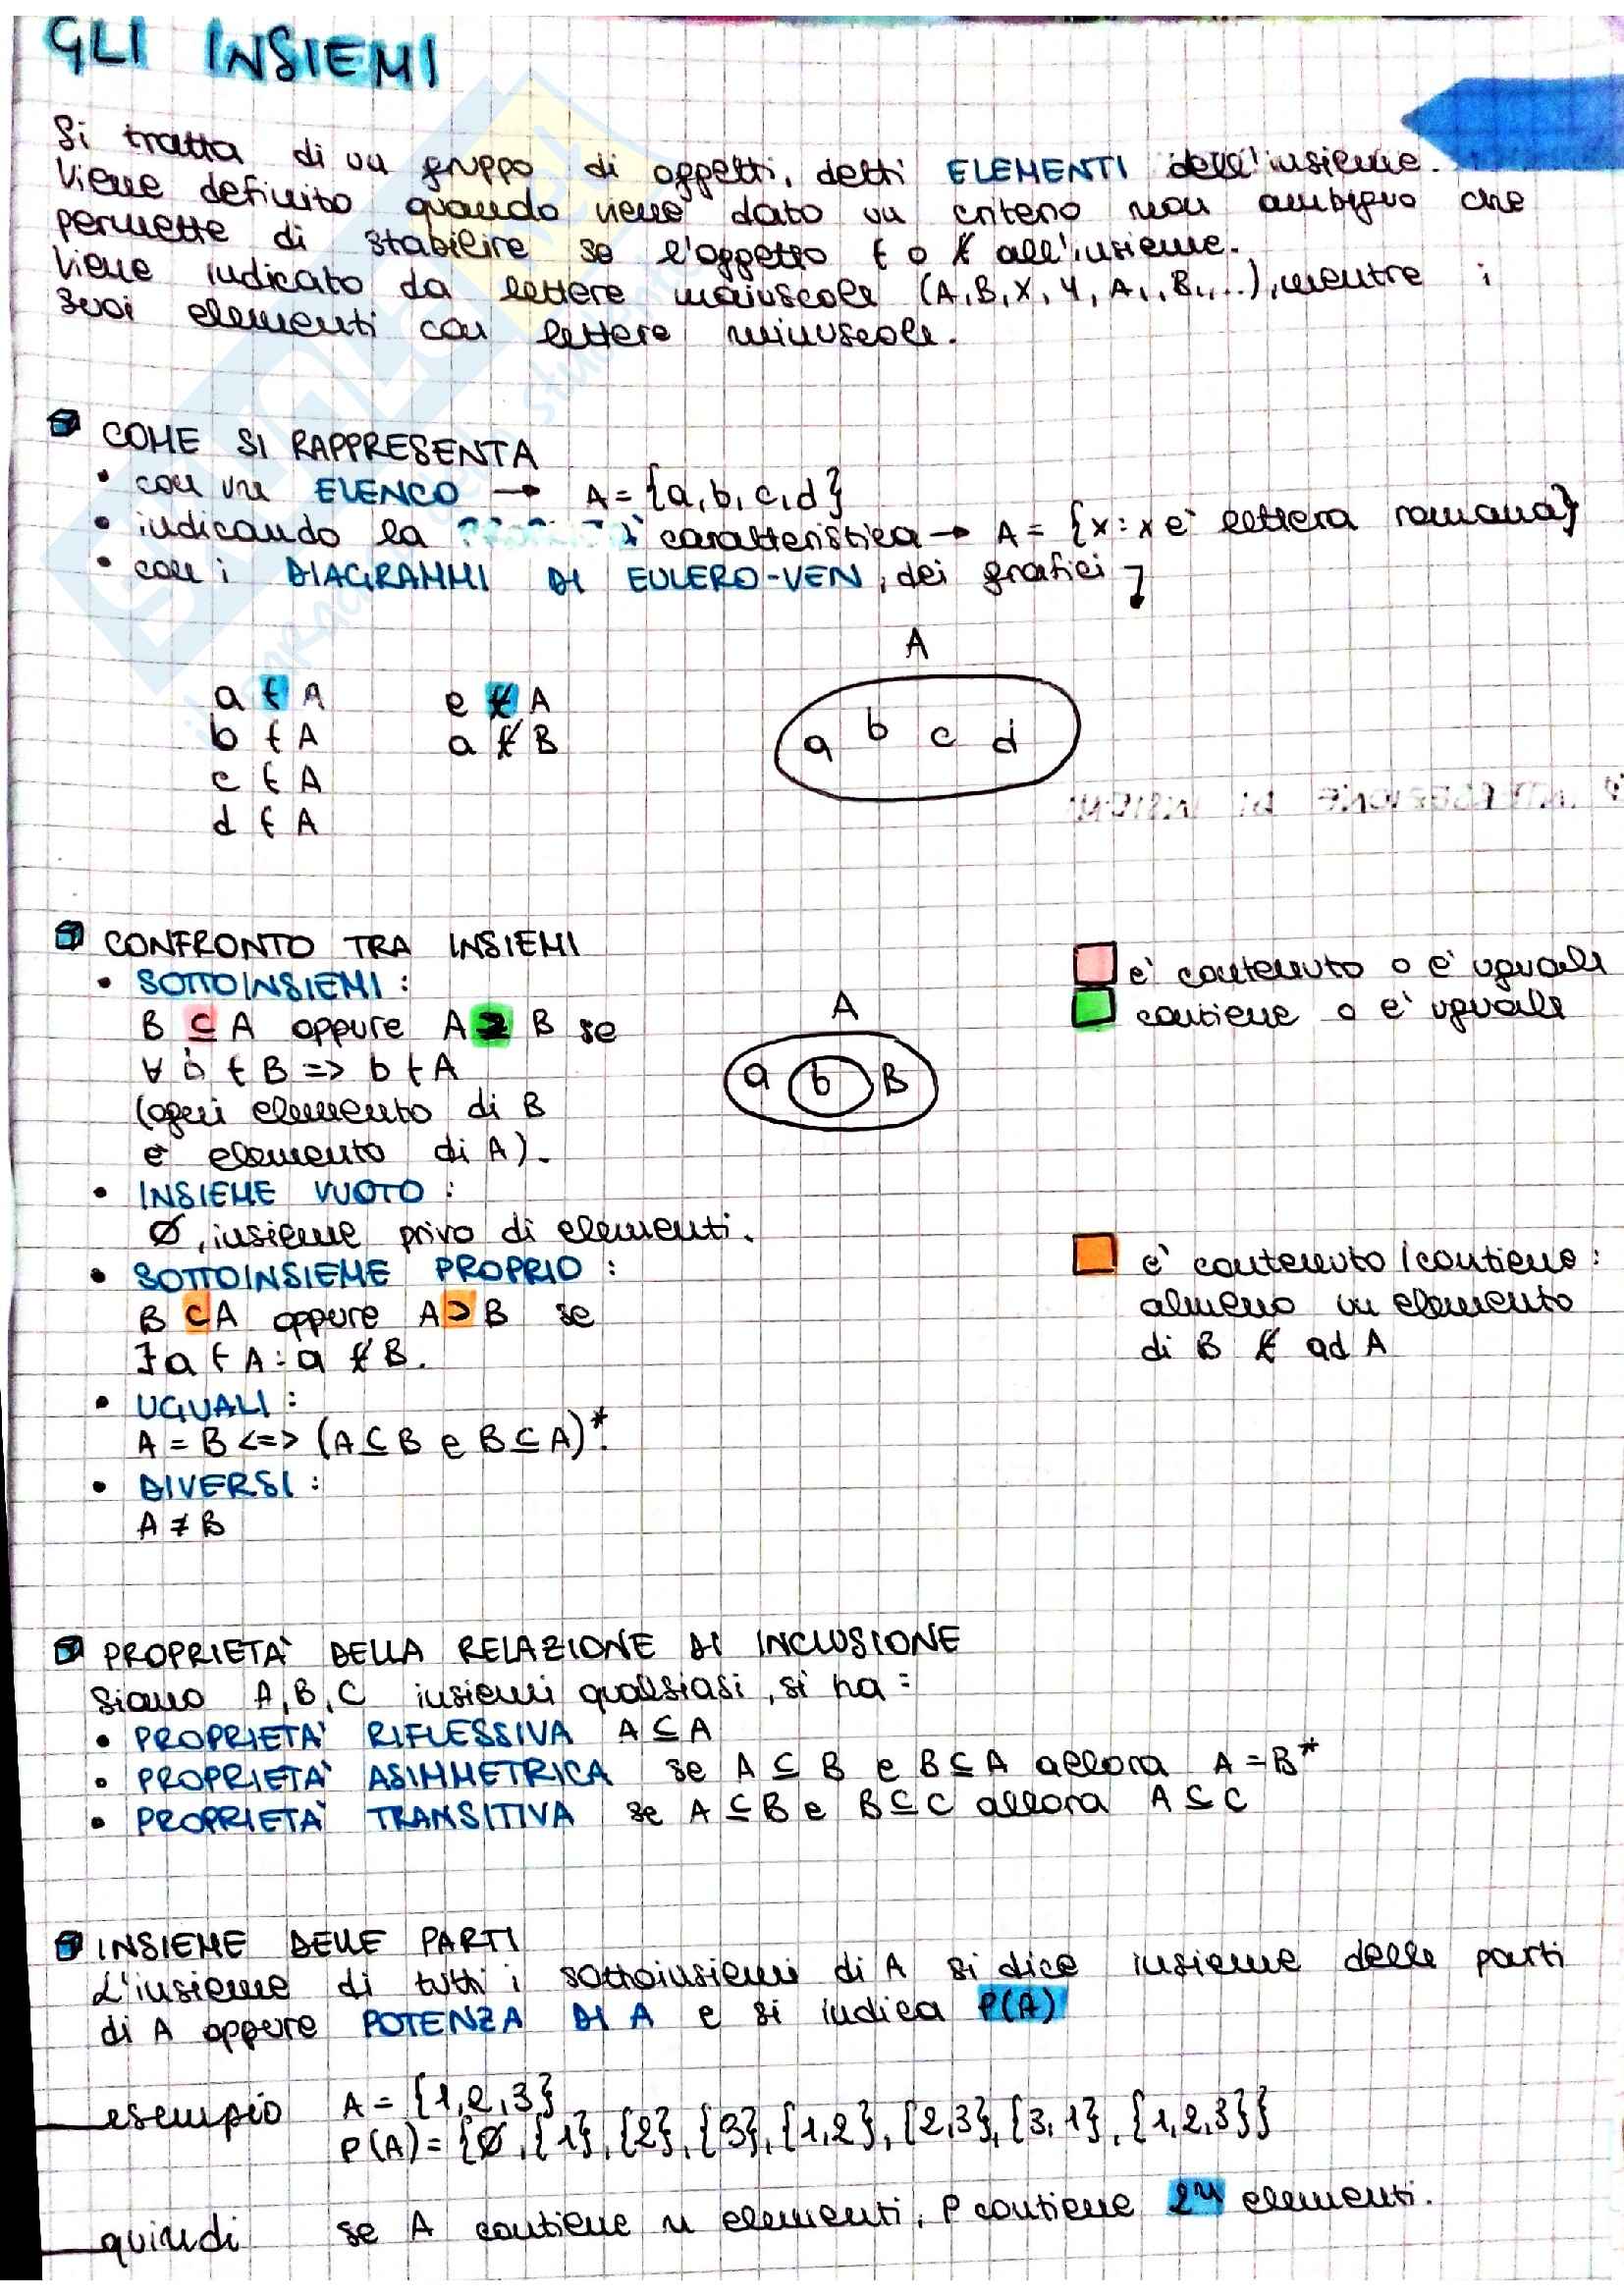 GLI INSIEMI
Si tratta di un gruppo di oggetti, detti ELEMENTI dell'insieme.
Viene definito quando viene dato un criterio non ambiguo che
permette di stabilire se l'oggetto ∈ o ∉ all'insieme.
Viene indicato da lettere maiuscole (A, B, X, Y, A₁, B₁, ...), mentre i
suoi elementi con lettere minuscole.
COME SI RAPPRESENTA
• con un ELENCO → A = {a, b, c, d}
• indicando la caratteristica → A = {x : x è lettera romana}
• con i DIAGRAMMI DI EULERO-VEN, dei grafici
A
a ∈ A e ∉ A
b ∈ A a ∉ B
c ∈ A
d ∈ A
a b c d
CONFRONTO TRA INSIEMI
• SOTTOINSIEMI:
B ⊆ A oppure A ⊇ B se
∀ b ∈ B => b ∈ A
(ogni elemento di B
è elemento di A).
A
a b B
è contenuto o è uguale
contiene o è uguale
• INSIEME VUOTO:
Ø, insieme privo di elementi.
• SOTTOINSIEME PROPRIO:
B ⊂ A oppure A ⊃ B se
∃ a ∈ A : a ∉ B.
è contenuto / contiene:
almeno un elemento
di B ∉ ad A
• UGUALI:
A = B <=> (A ⊆ B e B ⊆ A)*.
• DIVERSI:
A ≠ B
PROPRIETÀ DELLA RELAZIONE DI INCLUSIONE
Siano A, B, C insiemi qualsiasi, si ha:
• PROPRIETÀ RIFLESSIVA A ⊆ A
• PROPRIETÀ ASIMMETRICA se A ⊆ B e B ⊆ A allora A = B*
• PROPRIETÀ TRANSITIVA se A ⊆ B e B ⊆ C allora A ⊆ C
INSIEME DELLE PARTI
L'insieme di tutti i sottoinsiemi di A si dice insieme delle parti
di A oppure POTENZA DI A e si indica P(A)
esempio A = {1, 2, 3}
P(A) = {Ø, {1}, {2}, {3}, {1,2}, {2,3}, {3,1}, {1,2,3}}
quindi se A contiene n elementi, P contiene 2ⁿ elementi.